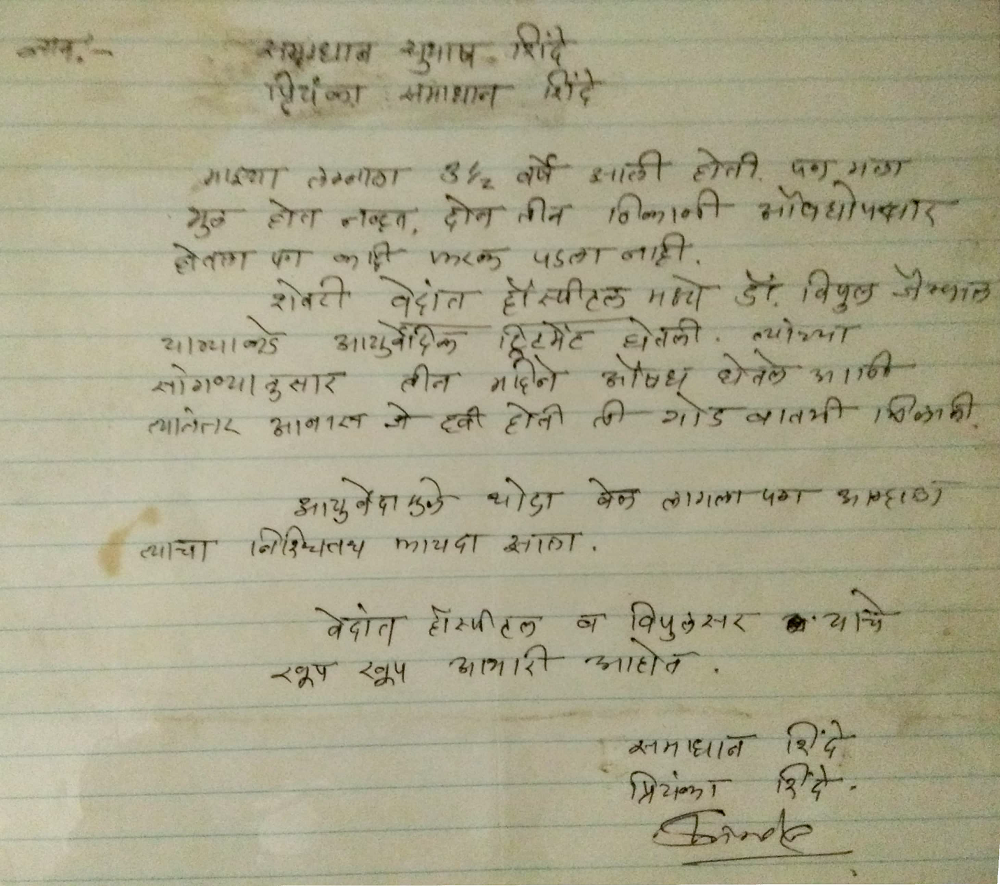 नाव:- समाधान सुभाष शिंदे
प्रियंका समाधान शिंदे
माझ्या लग्नाला 3½ वर्षे झाली होती. पण मला
मुल होत नव्हत, दोन तीन ठिकाणी औषधोपचार
घेतला पण काही फरक पडला नाही.
शेवटी वेदांत हॉस्पीटल मध्ये डॉ. विपुल जैस्वाल
यांच्याकडे आयुर्वेदिक ट्रिटमेंट घेतली. त्यांच्या
सांगण्यानुसार तीन महिने औषध घेतले आणि
त्यानंतर आम्हाला जे हवी होती ती गोड बातमी मिळाली.
आयुर्वेदामुळे थोडा वेळ लागला पण आम्हाला
त्याचा निश्चितच फायदा झाला.
वेदांत हॉस्पीटल व विपुलसर यांचे
खूप खूप आभारी आहोत.
समाधान शिंदे
प्रियंका शिंदे.